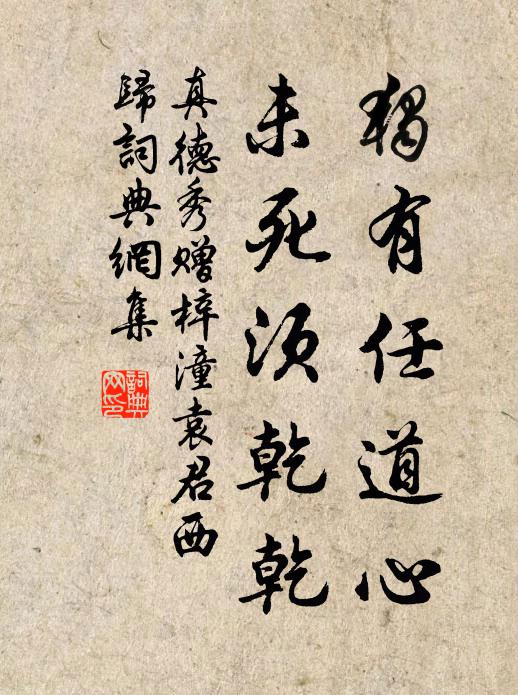 獨有任道心
未死須乾乾
真德秀贈梓潼袁君西
歸詞典網集
詞典
网印